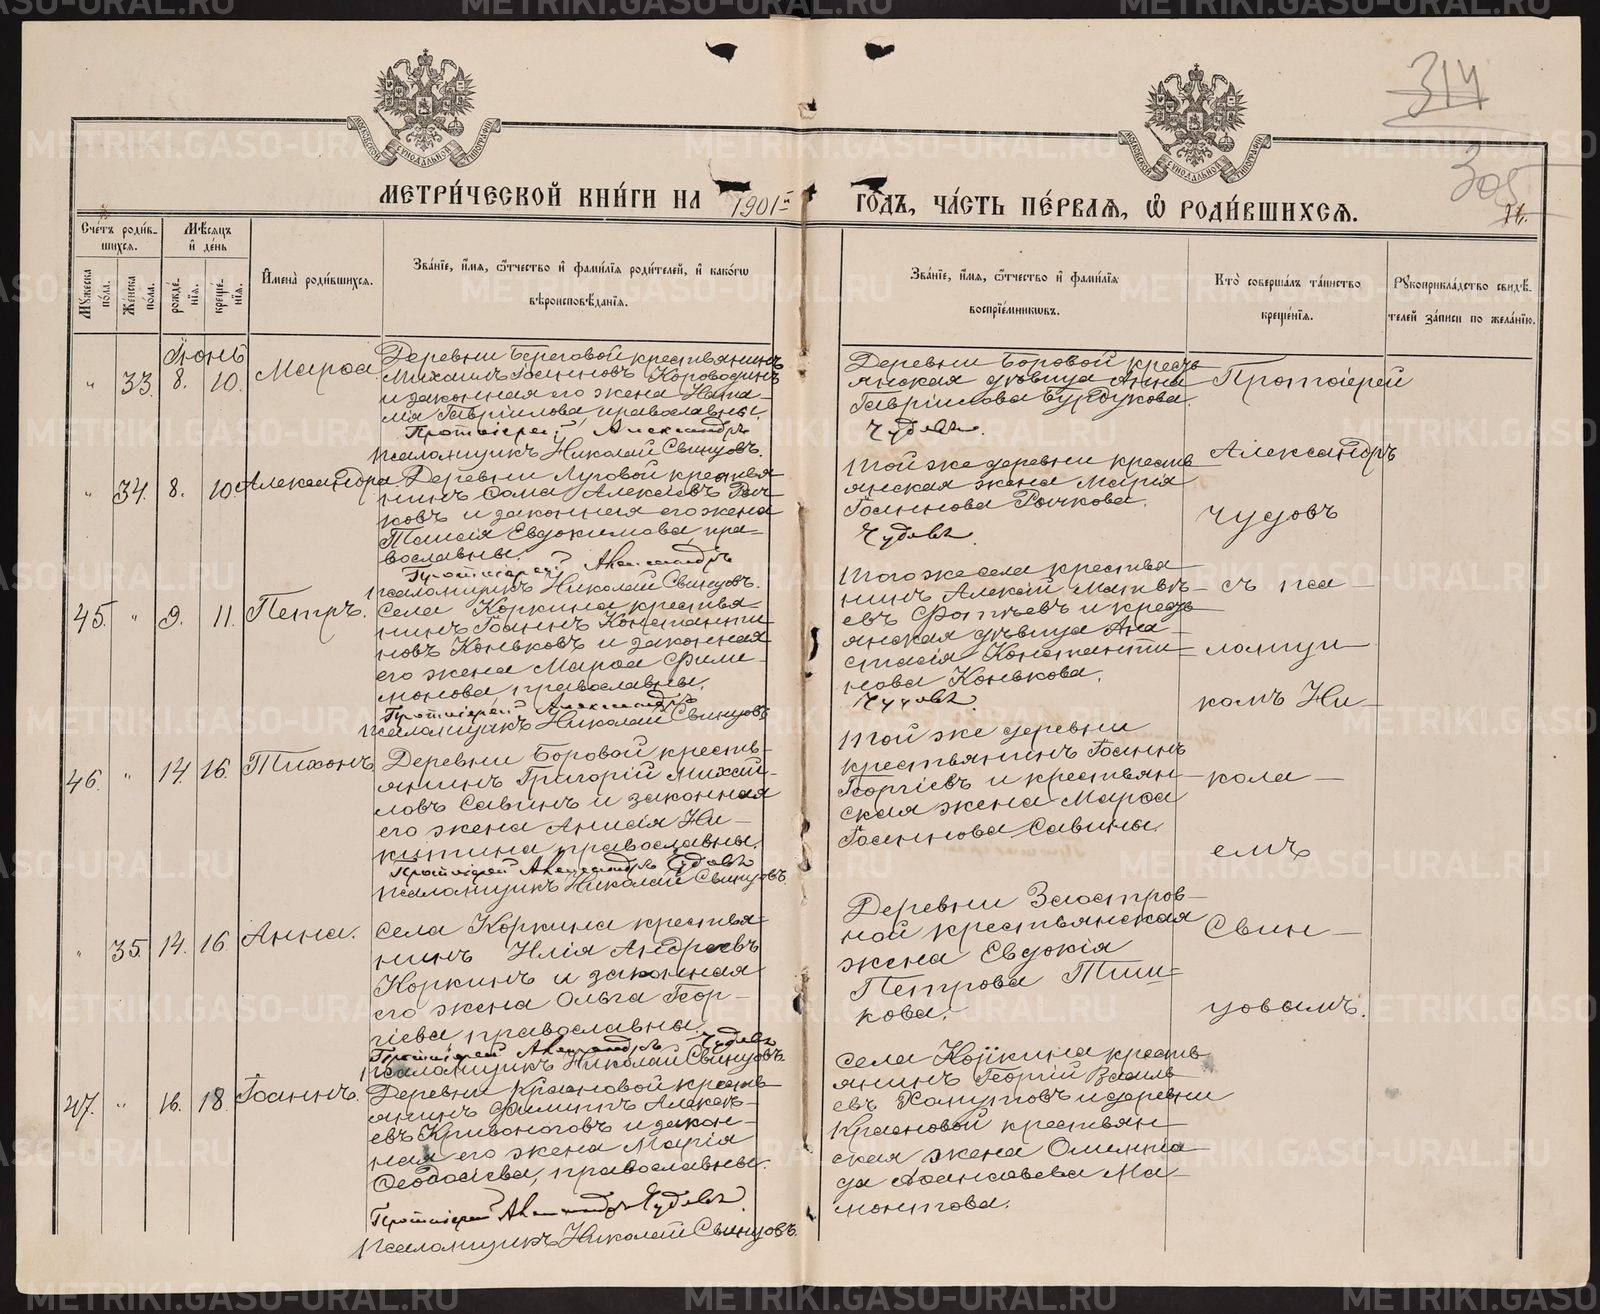 314
305
МЕТРИ́ЧЕСКОЙ КНИ́ГИ НА 1901й ГО́ДЪ, ЧА́СТЬ ПЕ́РВАѦ, Ѽ РОДИ́ВШИХСѦ.
11.
Сче́тъ роди́вшихсѧ.
Мꙋ́жеска по́ла.
Же́нска по́ла.
Мѣ́сѧцъ и҆ де́нь
рожде́нїѧ.
креще́нїѧ.
И҆мена̀ роди́вшихсѧ.
Зва́нїе, и҆́мѧ, ѻ҆́тчество и҆ фами́лїѧ роди́телей, и҆ како́гѡ вѣроисповѣ́данїѧ.
Зва́нїе, и҆́мѧ, ѻ҆́тчество и҆ фами́лїѧ воспрїе́мникѡвъ.
Кто̀ соверша́лъ та́инство креще́нїѧ.
Рꙋкоприкла́дство свидѣ́телей за́писи по жела́нїю.
Іюнь
„ 33. 8. 10.
Марѳа
Деревни Береговой крестьянинъ
Михаилъ Іоанновъ Короводинъ
и законная его жена Ната-
лія Гавріилова, православны.
Протоіерей Александръ
Псаломщикъ Николай Свинцовъ.
Деревни Боровой кресть
янская дѣвица Анна
Гавріилова Бурдукова.
Чудовъ.
Протоіерей
Александръ
Чудовъ
съ пса-
ломщи-
комъ Ни-
кола-
емъ
Свин-
цовымъ.
„ 34. 8. 10.
Александра
Деревни Луговой крестья
нинъ Ѳома Алексѣевъ Рыч-
ковъ и законная его жена
Таисія Евдокимова, пра-
вославны.
Протоіерей Александръ
Псаломщикъ Николай Свинцовъ.
Той же деревни кресть
янская жена Марія
Іоаннова Рычкова.
Чудовъ.
45. „ 9. 11.
Петръ.
Села Коркина крестья-
нинъ Іоаннъ Константи
новъ Коньковъ и законная
его жена Марѳа Фили-
монова, православны.
Протоіерей Александръ
Псаломщикъ Николай Свинцовъ
Того же села крестья
нинъ Алексій Матвѣ-
евъ Фотѣевъ и кресть
янская дѣвица Ана-
стасія Константи-
нова Конькова.
Чудовъ
46. „ 14. 16.
Тихонъ.
Деревни Боровой кресть-
янинъ Григорій Михай-
ловъ Савинъ и законная
его жена Анисія Ни-
китина, православны.
Протоіерей Александръ Чудовъ
Псаломщикъ Николай Свинцовъ.
Той же деревни
крестьянинъ Іоаннъ
Георгіевъ и крестьян-
ская жена Марѳа
Іоаннова Савины.
„ 35. 14. 16.
Анна.
Села Коркина крестья-
нинъ Илія Андреевъ
Коркинъ и законная
его жена Ольга Геор-
гіева, православны.
Протоіерей Александръ Чудовъ
Псаломщикъ Николай Свинцовъ.
Деревни Заостров-
ной крестьянская
жена Евдокія
Петрова Тши-
кова.
47. „ 16. 18.
Іоаннъ.
Деревни Крановой кресть
янинъ Филиппъ Алексѣ-
евъ Кривоноговъ и закон-
ная его жена Марія
Ѳеодосіева, православны.
Протоіерей Александръ Чудовъ.
Псаломщикъ Николай Свинцовъ.
Села Коркина кресть
янинъ Георгій Василь
евъ Хомутовъ и деревни
Крановой крестьян-
ская жена Олимпіа
да Аѳанасьева Ма-
монтова.
METRIKI.GASO-URAL.RU